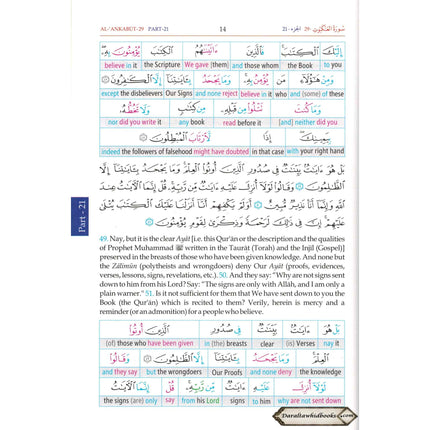 AL-'ANKABUT-29 PART-21 14 سُورَةُ العَنكَبُوت ٢٩ الجزء ٢١
إِلَيْكَ ٱلْكِتَـٰبَ فَٱلَّذِينَ ءَاتَيْنَـٰهُمُ ٱلْكِتَـٰبَ يُؤْمِنُونَ بِهِۦ
believe in it the Scripture We gave [them] and those whom the Book to you
وَمِنْ هَـٰٓؤُلَآءِ مَن يُؤْمِنُ بِهِۦ وَمَا يَجْحَدُ بِـَٔايَـٰتِنَآ إِلَّا ٱلْكَـٰفِرُونَ ٤٧
except the disbelievers Our Signs and none reject believe in it who and (some) of these
وَمَا كُنتَ تَتْلُوا۟ مِن قَبْلِهِۦ مِن كِتَـٰبٍ وَلَا تَخُطُّهُۥ
nor did you write it any book before it read [and] neither did you
بِيَمِينِكَ إِذًا لَّٱرْتَابَ ٱلْمُبْطِلُونَ ٤٨
indeed the followers of falsehood might have doubted in that case with your right hand
بَلْ هُوَ ءَايَـٰتٌۢ بَيِّنَـٰتٌ فِى صُدُورِ ٱلَّذِينَ أُوتُوا۟ ٱلْعِلْمَ وَمَا يَجْحَدُ بِـَٔايَـٰتِنَآ إِلَّا
ٱلظَّـٰلِمُونَ ٤٩ وَقَالُوا۟ لَوْلَآ أُنزِلَ عَلَيْهِ ءَايَـٰتٌ مِّن رَّبِّهِۦ قُلْ إِنَّمَا ٱلْـَٔايَـٰتُ عِندَ
ٱللَّهِ وَإِنَّمَآ أَنَا۠ نَذِيرٌ مُّبِينٌ ٥٠ أَوَلَمْ يَكْفِهِمْ أَنَّآ أَنزَلْنَا عَلَيْكَ ٱلْكِتَـٰبَ يُتْلَىٰ
عَلَيْهِمْ إِنَّ فِى ذَٰلِكَ لَرَحْمَةً وَذِكْرَىٰ لِقَوْمٍ يُؤْمِنُونَ ٥١
Part - 21
49. Nay, but it is the clear Ayât [i.e. this Qur'ân or the description and the qualities
of Prophet Muhammad ﷺ written in the Taurât (Torah) and the Injîl (Gospel)]
preserved in the breasts of those who have been given knowledge. And none but
the Zâlimûn (polytheists and wrongdoers) deny Our Ayât (proofs, evidences,
verses, lessons, signs, revelations, etc.). 50. And they say: "Why are not signs sent
down to him from his Lord? Say: "The signs are only with Allah, and I am only a
plain warner." 51. Is it not sufficient for them that We have sent down to you the
Book (the Qur'ân) which is recited to them? Verily, herein is mercy and a
reminder (or an admonition) for a people who believe.
بَلْ هُوَ ءَايَـٰتٌۢ بَيِّنَـٰتٌ فِى صُدُورِ ٱلَّذِينَ أُوتُوا۟
(of) those who have been given in (the) breasts clear (is) Verses nay it
ٱلْعِلْمَ وَمَا يَجْحَدُ بِـَٔايَـٰتِنَآ إِلَّا ٱلظَّـٰلِمُونَ ٤٩ وَقَالُوا۟
and they say but the wrongdoers Our Proofs and none deny the knowledge
لَوْلَآ أُنزِلَ عَلَيْهِ ءَايَـٰتٌ مِّن رَّبِّهِۦ قُلْ إِنَّمَا ٱلْـَٔايَـٰتُ
the signs (are) only say from his Lord signs to him why are not sent down
Daraltawhidbooks.com